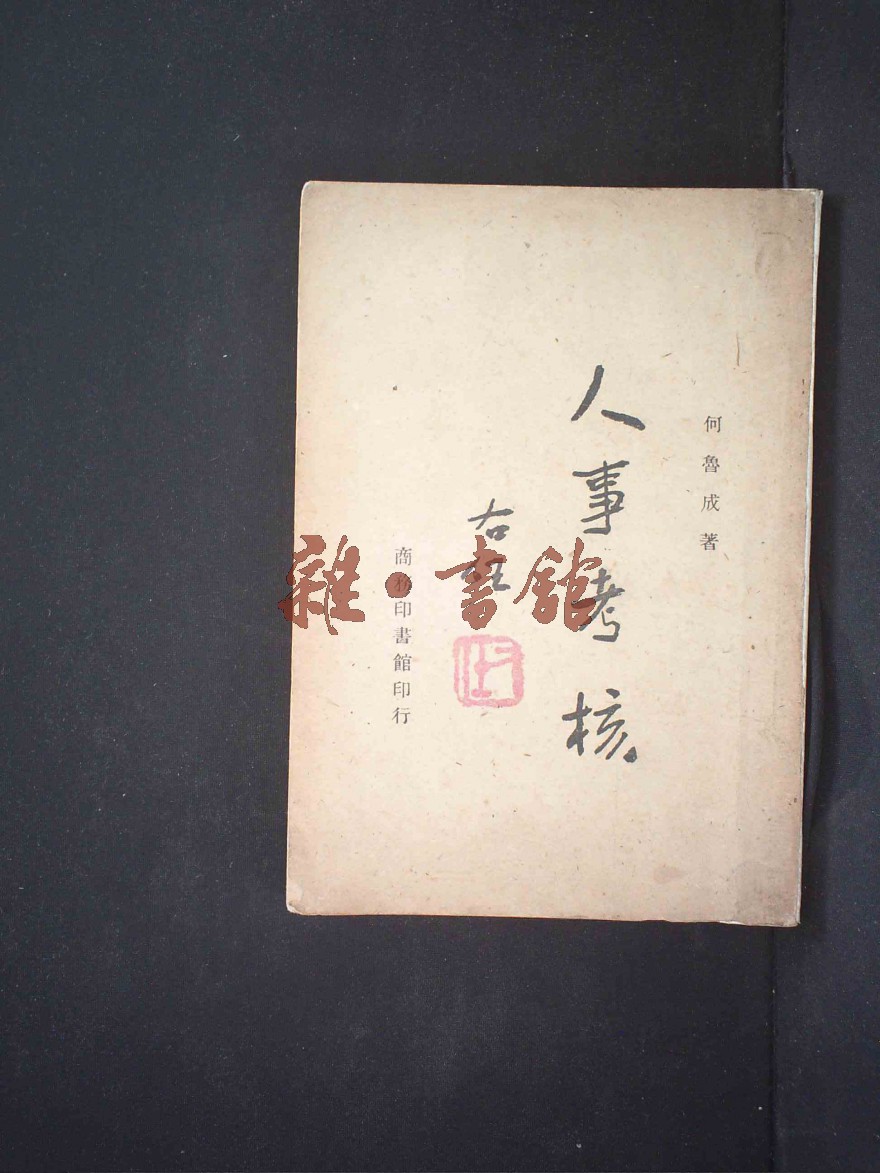 何魯成著
人事考核
右任
商務印書館印行
雜·書館